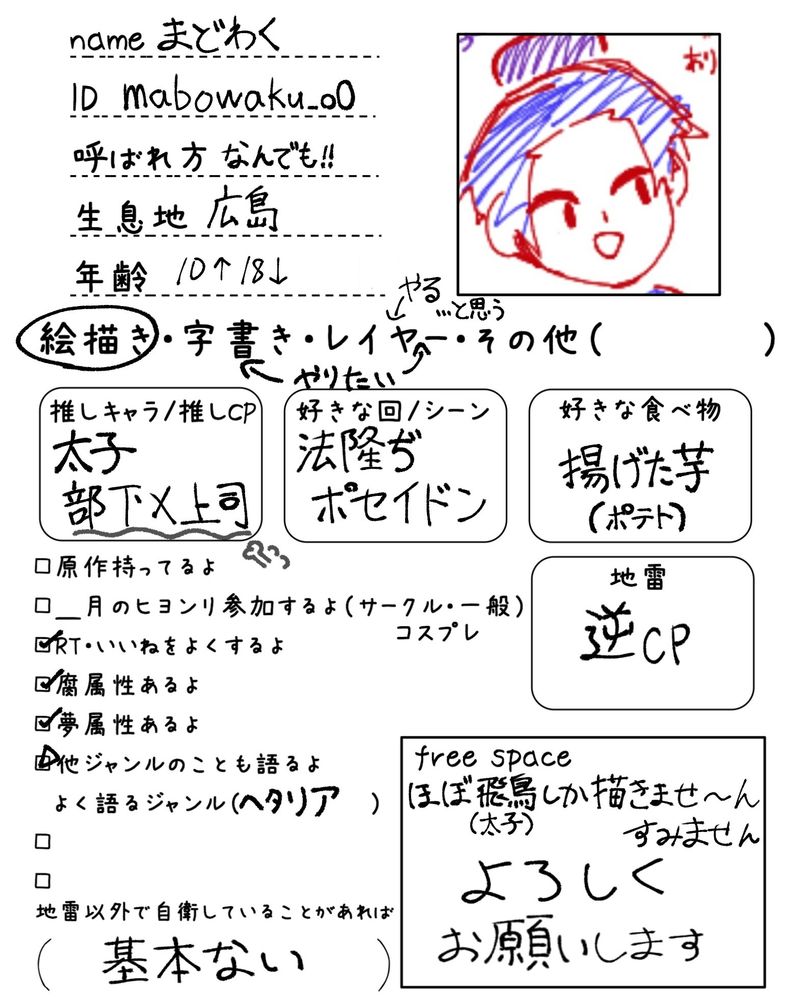 name まどわく
ID mabowaku_o0
呼ばれ方 なんでも!!
生息地 広島
年齢 10↑18↓
おり
やる
…と思う
絵描き・字書き・レイヤー・その他( )
やりたい
推しキャラ/推しCP
太子
部下×上司
好きな回/シーン
法隆ぢ
ポセイドン
好きな食べ物
揚げた芋
(ポテト)
□原作持ってるよ
□__月のヒヨンリ参加するよ(サークル・一般)
コスプレ
☑RT・いいねをよくするよ
☑腐属性あるよ
☑夢属性あるよ
☑他ジャンルのことも語るよ
よく語るジャンル(ヘタリア )
□
□
地雷以外で自衛していることがあれば
(基本ない)
地雷
逆CP
free space
ほぼ飛鳥しか描きませ〜ん
(太子)
すみません
よろしく
お願いします